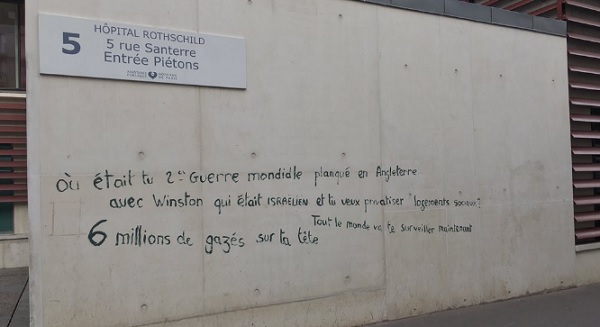 5
HÔPITAL ROTHSCHILD
5 rue Santerre
Entrée Piétons
où était tu 2e Guerre mondiale planqué en Angleterre
avec Winston qui était ISRAELIEN et tu veux privatiser "logements sociaux"?
6 millions de gazés sur ta tête
Tout le monde va te surveiller maintenant